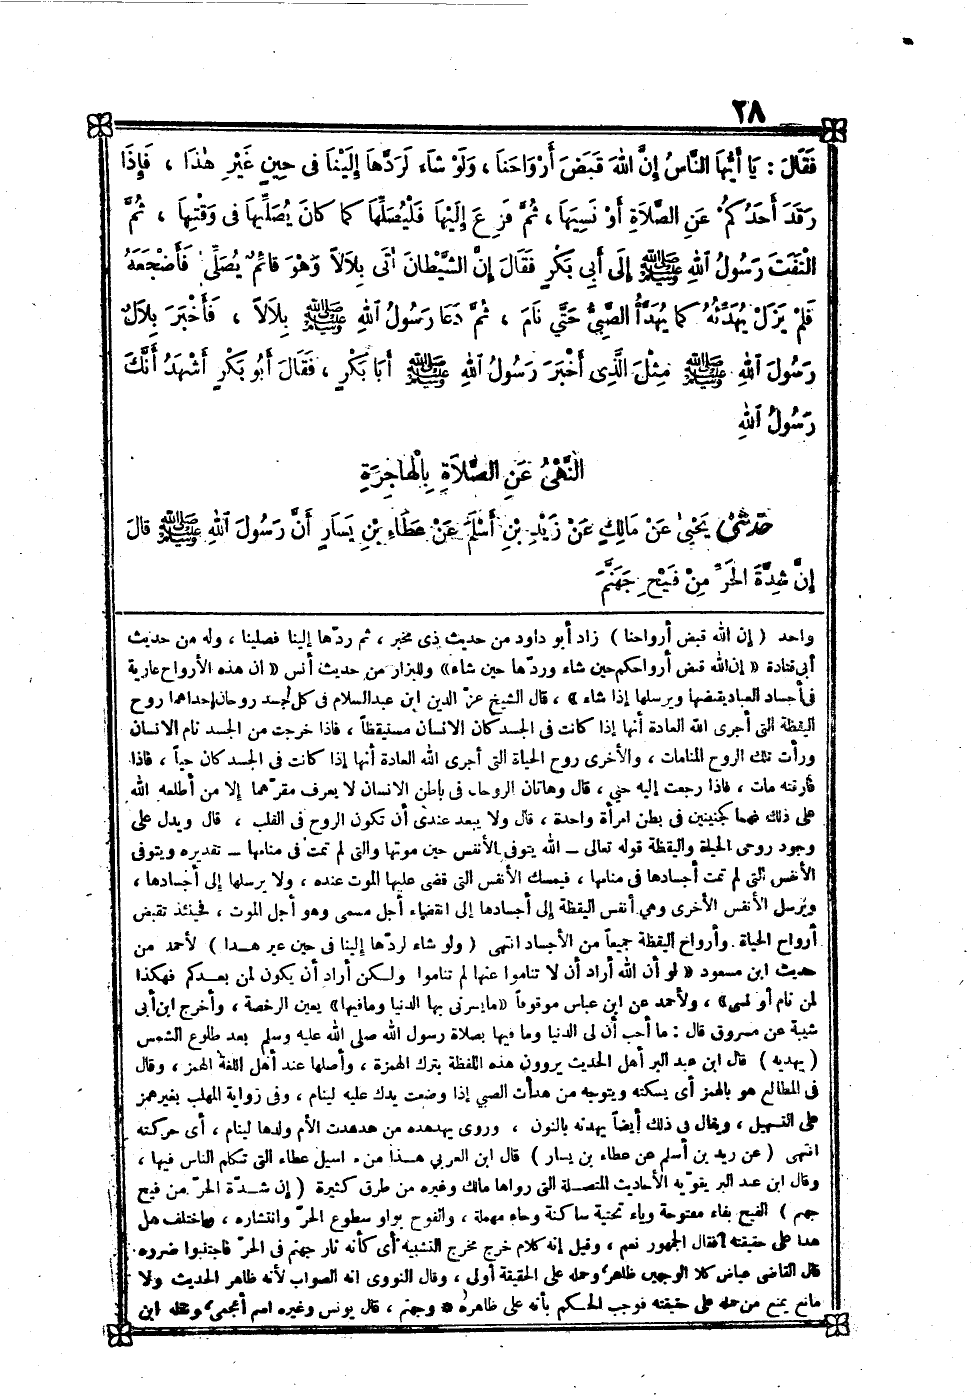 ٢٨
فَقَالَ : يَا أَيُّهَا النَّاسُ إِنَّ اللهَ قَبَضَ أَرْوَاحَنَا ، وَلَوْ شَاءَ لَرَدَّهَا إِلَيْنَا فِى حِينٍ غَيْرِ هٰذَا ، فَإِذَا
رَقَدَ أَحَدُكُمْ عَنِ الصَّلَاةِ أَوْ نَسِيَهَا ، ثُمَّ فَزِعَ إِلَيْهَا فَلْيُصَلِّهَا كَمَا كَانَ يُصَلِّيهَا فِى وَقْتِهَا ، ثُمَّ
الْتَفَتَ رَسُولُ اللهِ ﷺ إِلَى أَبِي بَكْرٍ فَقَالَ إِنَّ الشَّيْطَانَ أَتَى بِلَالاً وَهْوَ قَائِمٌ يُصَلِّى فَأَضْجَعَهُ
فَلَمْ يَزَلْ يُهَدِّئُهُ كَمَا يُهَدَّأُ الصَّبِيُّ حَتَّي نَامَ ، ثُمَّ دَعَا رَسُولُ اللهِ ﷺ بِلَالاً ، فَأَخْبَرَ بِلَالٌ
رَسُولَ اللهِ ﷺ مِثْلَ الَّذِى أَخْبَرَ رَسُولُ اللهِ ﷺ أَبَا بَكْرٍ ، فَقَالَ أَبُو بَكْرٍ أَشْهَدُ أَنَّكَ
رَسُولُ اللهِ
النَّهْىُ عَنِ الصَّلَاةِ بِالْهَاجِرَةِ
حَدَّثَنِى يَحْيَى عَنْ مَالِكٍ عَنْ زَيْدِ بْنِ أَسْلَمَ عَنْ عَطَاءِ بْنِ يَسَارٍ أَنَّ رَسُولَ اللهِ ﷺ قَالَ
إِنَّ شِدَّةَ الْحَرِّ مِنْ فَيْحِ جَهَنَّمَ
واحد ( إن الله قبض أرواحنا ) زاد أبو داود من حديث ذى مخبر ، ثم ردّها إلينا فصلينا ، وله من حديث
أبى قتادة « إن الله قبض أرواحكم حين شاء وردّها حين شاء» وللبزار من حديث أنس « ان هذه الأرواح عارية
فى أجساد العباد يقبضها ويرسلها إذا شاء » ، قال الشيخ عزّ الدين ابن عبد السلام فى كل جسد روحان إحداهما روح
اليقظة التى أجرى الله العادة أنها إذا كانت فى الجسد كان الانسان مستيقظاً ، فاذا خرجت من الجسد نام الانسان
ورأت تلك الروح المنامات ، والأخرى روح الحياة التى أجرى الله العادة أنها إذا كانت فى الجسد كان حياً ، فاذا
فارقته مات ، فاذا رجعت إليه حي ، قال وهاتان الروحان فى باطن الانسان لا يعرف مقرّهما إلا من أطلعه الله
على ذلك فهما كجنينين فى بطن امرأة واحدة ، قال ولا يبعد عندى أن تكون الروح فى القلب ، قال ويدل على
وجود روحى الحياة واليقظة قوله تعالى ــ الله يتوفى الأنفس حين موتها والتى لم تمت فى منامها ــ تقديره ويتوفى
الأنفس التى لم تمت أجسادها فى منامها ، فيمسك الأنفس التى قضى عليها الموت عنده ، ولا يرسلها إلى أجسادها ،
ويرسل الأنفس الأخرى وهي أنفس اليقظة إلى أجسادها إلى انقضاء أجل مسمى وهو أجل الموت ، فحينئذ تقبض
أرواح الحياة وأرواح اليقظة جميعاً من الأجساد انتهى ( ولو شاء لردّها إلينا فى حين غير هــذا ) لأحمد من
حديث ابن مسعود « لو أن الله أراد أن لا تناموا عنها لم تناموا ولكن أراد أن يكون لمن بعدكم فهكذا
لمن نام أو نسى » ، ولأحمد عن ابن عباس موقوفاً «ما يسرنى بها الدنيا وما فيها» يعين الرخصة ، وأخرج ابن أبى
شيبة عن مسروق قال : ما أحب أن لى الدنيا وما فيها بصلاة رسول الله صلى الله عليه وسلم بعد طلوع الشمس
( يهديه ) قال ابن عبد البر أهل الحديث يروون هذه اللفظة بترك الهمزة ، وأصلها عند أهل اللغة الهمز ، وقال
فى المطالع هو بالهمز أى يسكنه وينومه من هدأت الصبي إذا وضعت يدك عليه لينام ، وفى رواية المهلب بغير همز
على التسهيل ، ويقال فى ذلك أيضاً يهدنه بالنون ، وروى يهدهده من هدهدت الأم ولدها لينام ، أى حركته
انتهى ( عن زيد بن أسلم عن عطاء بن يسار ) قال ابن العربي هــذا من مراسيل عطاء التى تكلم الناس فيها ،
وقال ابن عبد البر يقوّيه الأحاديث المتصلة التى رواها مالك وغيره من طرق كثيرة ( إن شــدّة الحرّ من فيح
جهنم ) الفيح بفاء مفتوحة وياء تحتية ساكنة وحاء مهملة ، والفوح بواو سطوع الحرّ وانتشاره ، واختلف هل
هذا على حقيقته فقال الجمهور نعم ، وقيل إنه كلام خرج مخرج التشبيه أى كأنه نار جهنم فى الحرّ فاجتنبوا ضرره
قال القاضى عياض كلا الوجهين ظاهر وحمله على الحقيقة أولى ، وقال النووى انه الصواب لأنه ظاهر الحديث ولا
مانع يمنع من حمله على حقيقته فوجب الحكم بأنه على ظاهره * وجهنم ، قال يونس وغيره اسم أعجمى ونقله ابن